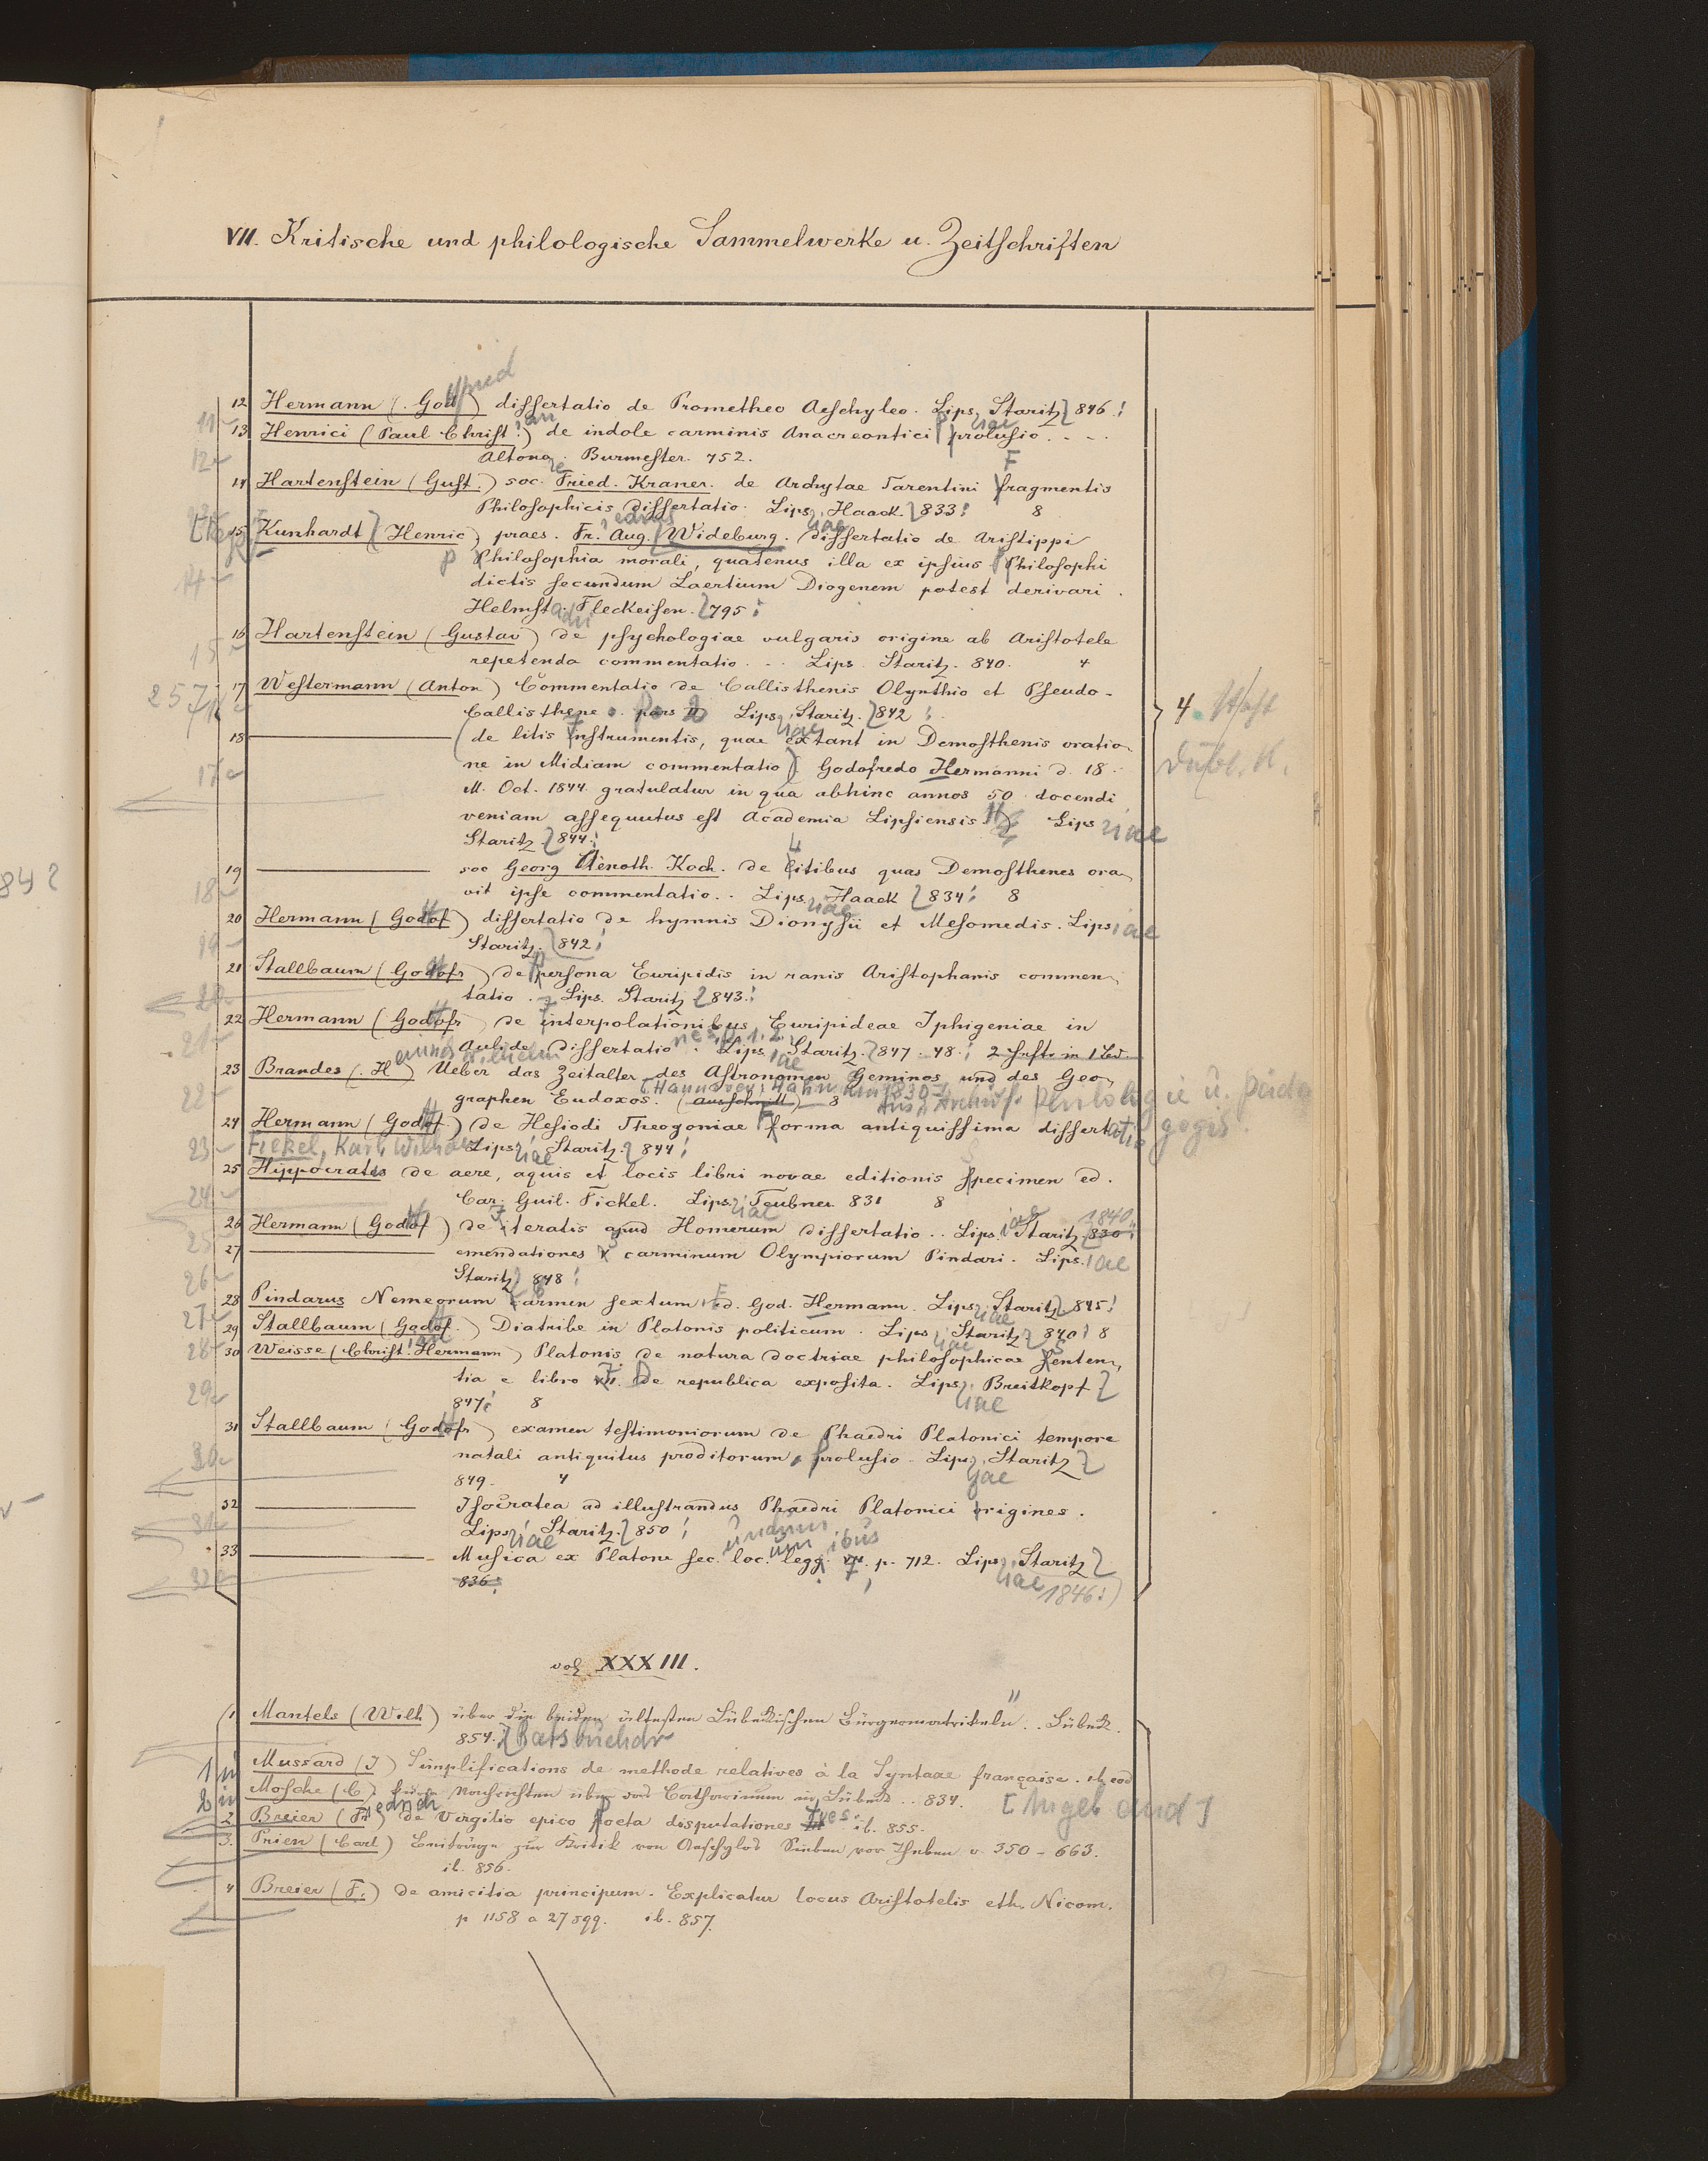 VII. Kritische und philologische Sammelwerke u. Zeitschriften
12 Hermann (Godf) dissertatio de Prometheo Aeschyleo. Lips, Staritz 846.
13 Henrici (Paul Christ.) de indole carminis Anacreontici prolusio . - -
Altona. Burmester. 752.
14 Hartenstein (Gust.) soc. Fried. Kraner. de Archytae Tarentini fragmentis
Philosophicis dissertatio. Lips, Haack. 833. 8
15 Kunhardt (Henric) praes. Fr. Aug. Wideburg. dissertatio de Aristippi
Philosophia morali, quatenus illa ex ipsius Philosophi
dictis secundum Laertium Diogenem potest derivari.
Helmst. Fleckeisen. 795
16 Hartenstein (Gustav) de psychologiae vulgaris origine ab Aristotele
repetenda commentatio . . . Lips. Staritz. 840. 4
17 Westermann (Anton) Commentatio de Callisthenis Olynthio et Pseudo-
Callisthene. pars II Lips, Staritz. 842
4
18 de litis instrumentis, quae extant in Demosthenis oratio-
ne in Midiam commentatio Godofredo Hermanni d. 18.
M. Oct. 1844 gratulatur in qua abhinc annos 50 docendi
veniam assequutus est Academia Lipsiensis Lips
Staritz. 844.
19 soc Georg Aenoth. Koch. de litibus quas Demosthenes ora-
vit ipse commentatio.. Lips, Haack 834 8
20 Hermann (Godof) dissertatio de hymnis Dionysii et Mesomedis. Lips
Staritz. 842
21 Stallbaum (Godofr) de persona Euripidis in ranis Aristophanis commen-
tatio. Lips. Staritz 843.
22 Hermann (Godofr) de interpolationibus Euripideae Iphigeniae in
Aulide dissertatio. Lips, Staritz. 847. 48. 2 Hefte in 1 Bd.
23 Brandes (H) Ueber das Zeitalter des Astronomen Geminos und des Geo-
graphen Eudoxos. (Ausschnitt) 8
24 Hermann (Godof.) de Hesiodi Theogoniae forma antiquissima dissertatio
Fickel, Karl Wilh. Lips, Staritz. 844
25 Hippocrates de aere, aquis et locis libri novae editionis specimen ed.
Car. Guil. Fickel. Lips, Teubner 831 8
26 Hermann (Godof) de iteratis apud Homerum dissertatio.. Lips. Staritz 830 1840
27 emendationes carminum Olympiorum Pindari. Lips. iae
Staritz 848
28 Pindarus Nemeorum carmen sextum ed. God. Hermann. Lips, Staritz. 845
29 Stallbaum (Godof.) Diatribe in Platonis politicum. Lips, Staritz 840 8
30 Weisse (Christ. Hermann) Platonis de natura doctriae philosophicae senten-
tia e libro VII. de republica exposita. Lips, Breitkopf
847 8
31 Stallbaum (Godofr) examen testimoniorum de Phaedri Platonici tempore
natali antiquitus proditorum, prolusio. Lips, Staritz
849. 4
32 Isocratea ad illustrandus Phaedri Platonici origines.
Lips, Staritz. 850
33 Musica ex Platone sec. loc. legg. VII. p. 712. Lips, Staritz
836. 1846
vol XXXIII.
1 Mantels (Wilh) über die beiden ältesten Lübeckischen Bürgermatrikeln.. Lübeck.
854.
Mussard (J) Simplifications de methode relatives à la Syntaxe française. ib. eod
Mosche (C.) Nachrichten über das Catharineum in Lübeck.. 834.
2 Breier (Fr) de Virgilio epico poeta disputationes ib. 855.
3. Prien (Carl) Beiträge zur Kritik von Aeschylos Sieben vor Theben v. 350 - 663.
ib. 856.
4 Breier (F.) de amicitia principum. Explicatur locus Aristotelis eth. Nicom.
p 1158 a 27 sqq. ib. 857.